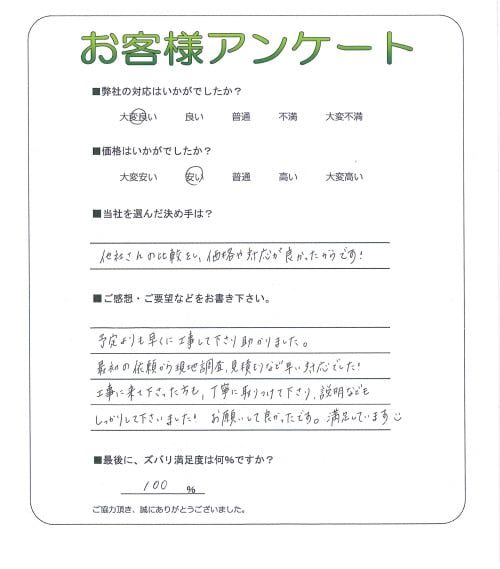 お客様アンケート
■弊社の対応はいかがでしたか?
大変良い 良い 普通 不満 大変不満
■価格はいかがでしたか?
大変安い 安い 普通 高い 大変高い
■当社を選んだ決め手は?
他社さんの比較をし、価格や対応が良かったからです!
■ご感想・ご要望などをお書き下さい。
予定よりも早くに工事して下さり助かりました。
最初の依頼から現地調査,見積もりなど早い対応でした!
工事に来て下さった方も、丁寧に取りつけて下さり、説明なども
しっかりして下さいました! お願いして良かったです。満足しています
■最後に、ズバリ満足度は何%ですか?
100 %
ご協力頂き、誠にありがとうございました。